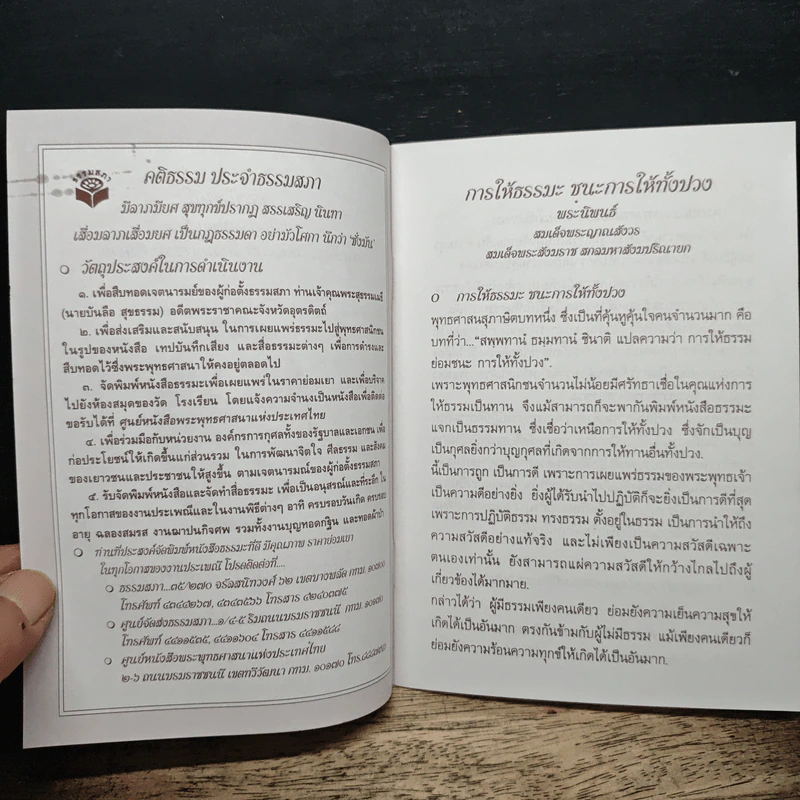 ธรรมสภา
คติธรรม ประจำธรรมสภา
มีลาภมียศ สุขทุกข์ปรากฏ สรรเสริญ นินทา
เสื่อมลาภเสื่อมยศ เป็นกฎธรรมดา อย่ามัวโศกา นึกว่า 'ช่างมัน'
วัตถุประสงค์ในการดำเนินงาน
๑. เพื่อสืบทอดเจตนารมย์ของผู้ก่อตั้งธรรมสภา ท่านเจ้าคุณพระสุธรรมเมธี
(นายบันลือ สุขธรรม) อดีตพระราชาคณะจังหวัดอุตรดิตถ์
๒. เพื่อส่งเสริมและสนับสนุน ในการเผยแพร่ธรรมะไปสู่พุทธศาสนิกชน
ในรูปของหนังสือ เทปบันทึกเสียง และสื่อธรรมะต่างๆ เพื่อการดำรงและ
สืบทอดไว้ซึ่งพระพุทธศาสนาให้คงอยู่ตลอดไป
๓. จัดพิมพ์หนังสือธรรมะเพื่อเผยแพร่ในราคาย่อมเยา และเพื่อบริจาค
ไปยังห้องสมุดของวัด โรงเรียน โดยแจ้งความจำนงเป็นหนังสือเพื่อติดต่อ
ขอรับได้ที่ ศูนย์หนังสือพระพุทธศาสนาแห่งประเทศไทย
๔. เพื่อร่วมมือกับหน่วยงาน องค์กรการกุศลทั้งของรัฐบาลและเอกชน เพื่อ
ก่อประโยชน์ให้เกิดขึ้นแก่ส่วนรวม ในการพัฒนาจิตใจ ศีลธรรม และสังคม
ของเยาวชนและประชาชนให้สูงขึ้น ตามเจตนารมณ์ของผู้ก่อตั้งธรรมสภา
๕. รับจัดพิมพ์หนังสือและจัดทำสื่อธรรมะ เพื่อเป็นอนุสรณ์และที่ระลึก ใน
ทุกโอกาสของงานประเพณีและในงานพิธีต่างๆ อาทิ ครบรอบวันเกิด ครบรอบ
อายุ ฉลองสมรส งานฌาปนกิจศพ รวมทั้งงานบุญทอดกฐิน และทอดผ้าป่า
ท่านที่ประสงค์จัดพิมพ์หนังสือธรรมะที่ดี มีคุณภาพ ราคาย่อมเยา
ในทุกโอกาสของงานประเพณี โปรดติดต่อที่....
ธรรมสภา...๓๕/๒๗๐ จรัลสนิทวงศ์ ๖๒ เขตบางพลัด กทม. ๑๐๗๐๐
โทรศัพท์ ๔๓๔๔๒๖๗, ๔๓๔๓๕๖๖ โทรสาร ๔๒๔๐๓๗๕
ศูนย์จัดส่งธรรมสภา...๑/๔-๕ ริมถนนบรมราชชนนี กทม. ๑๐๑๗๐
โทรศัพท์ ๔๔๑๑๕๓๕, ๔๔๑๑๖๐๔ โทรสาร ๔๔๑๑๕๔๔
ศูนย์หนังสือพระพุทธศาสนาแห่งประเทศไทย
๒-๖ ถนนบรมราชชนนี เขตทวีวัฒนา กทม. ๑๐๑๗๐
การให้ธรรมะ ชนะการให้ทั้งปวง
พระนิพนธ์
สมเด็จพระญาณสังวร
สมเด็จพระสังฆราช สกลมหาสังฆปริณายก
การให้ธรรมะ ชนะการให้ทั้งปวง
พุทธศาสนสุภาษิตบทหนึ่ง ซึ่งเป็นที่คุ้นหูคุ้นใจคนจำนวนมาก คือ
บทที่ว่า..."สพฺพทานํ ธมฺมทานํ ชินาติ แปลความว่า การให้ธรรม
ย่อมชนะ การให้ทั้งปวง".
เพราะพุทธศาสนิกชนจำนวนไม่น้อยมีศรัทธาเชื่อในคุณแห่งการ
ให้ธรรมเป็นทาน จึงแม้สามารถก็จะพากันพิมพ์หนังสือธรรมะ
แจกเป็นธรรมทาน ซึ่งเชื่อว่าเหนือการให้ทั้งปวง ซึ่งจักเป็นบุญ
เป็นกุศลยิ่งกว่าบุญกุศลที่เกิดจากการให้ทานอื่นทั้งปวง.
นี้เป็นการถูก เป็นการดี เพราะการเผยแพร่ธรรมของพระพุทธเจ้า
เป็นความดีอย่างยิ่ง ยิ่งผู้ได้รับนำไปปฏิบัติก็จะยิ่งเป็นการดีที่สุด
เพราะการปฏิบัติธรรม ทรงธรรม ตั้งอยู่ในธรรม เป็นการนำให้ถึง
ความสวัสดีอย่างแท้จริง และไม่เพียงเป็นความสวัสดีเฉพาะ
ตนเองเท่านั้น ยังสามารถแผ่ความสวัสดีให้กว้างไกลไปถึงผู้
เกี่ยวข้องได้มากมาย.
กล่าวได้ว่า ผู้มีธรรมเพียงคนเดียว ย่อมยังความเย็นความสุขให้
เกิดได้เป็นอันมาก ตรงกันข้ามกับผู้ไม่มีธรรม แม้เพียงคนเดียวก็
ย่อมยังความร้อนความทุกข์ให้เกิดได้เป็นอันมาก.